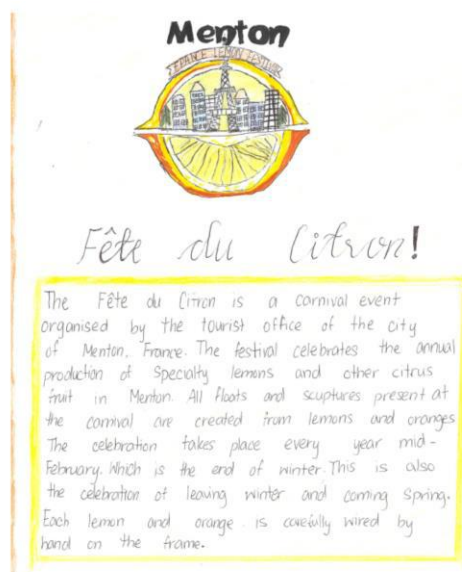 Menton
FRANCE LEMON FESTIVAL
Fête du Citron!
The Fête du Citron is a carnival event
organised by the tourist office of the city
of Menton, France. The festival celebrates the annual
production of Specialty lemons and other citrus
fruit in Menton. All floats and scuptures present at
the carnival are created from lemons and oranges
The celebration takes place every year mid-
February. Which is the end of winter. This is also
the celebration of leaving winter and coming Spring.
Each lemon and orange is carefully wired by
hand on the frame.